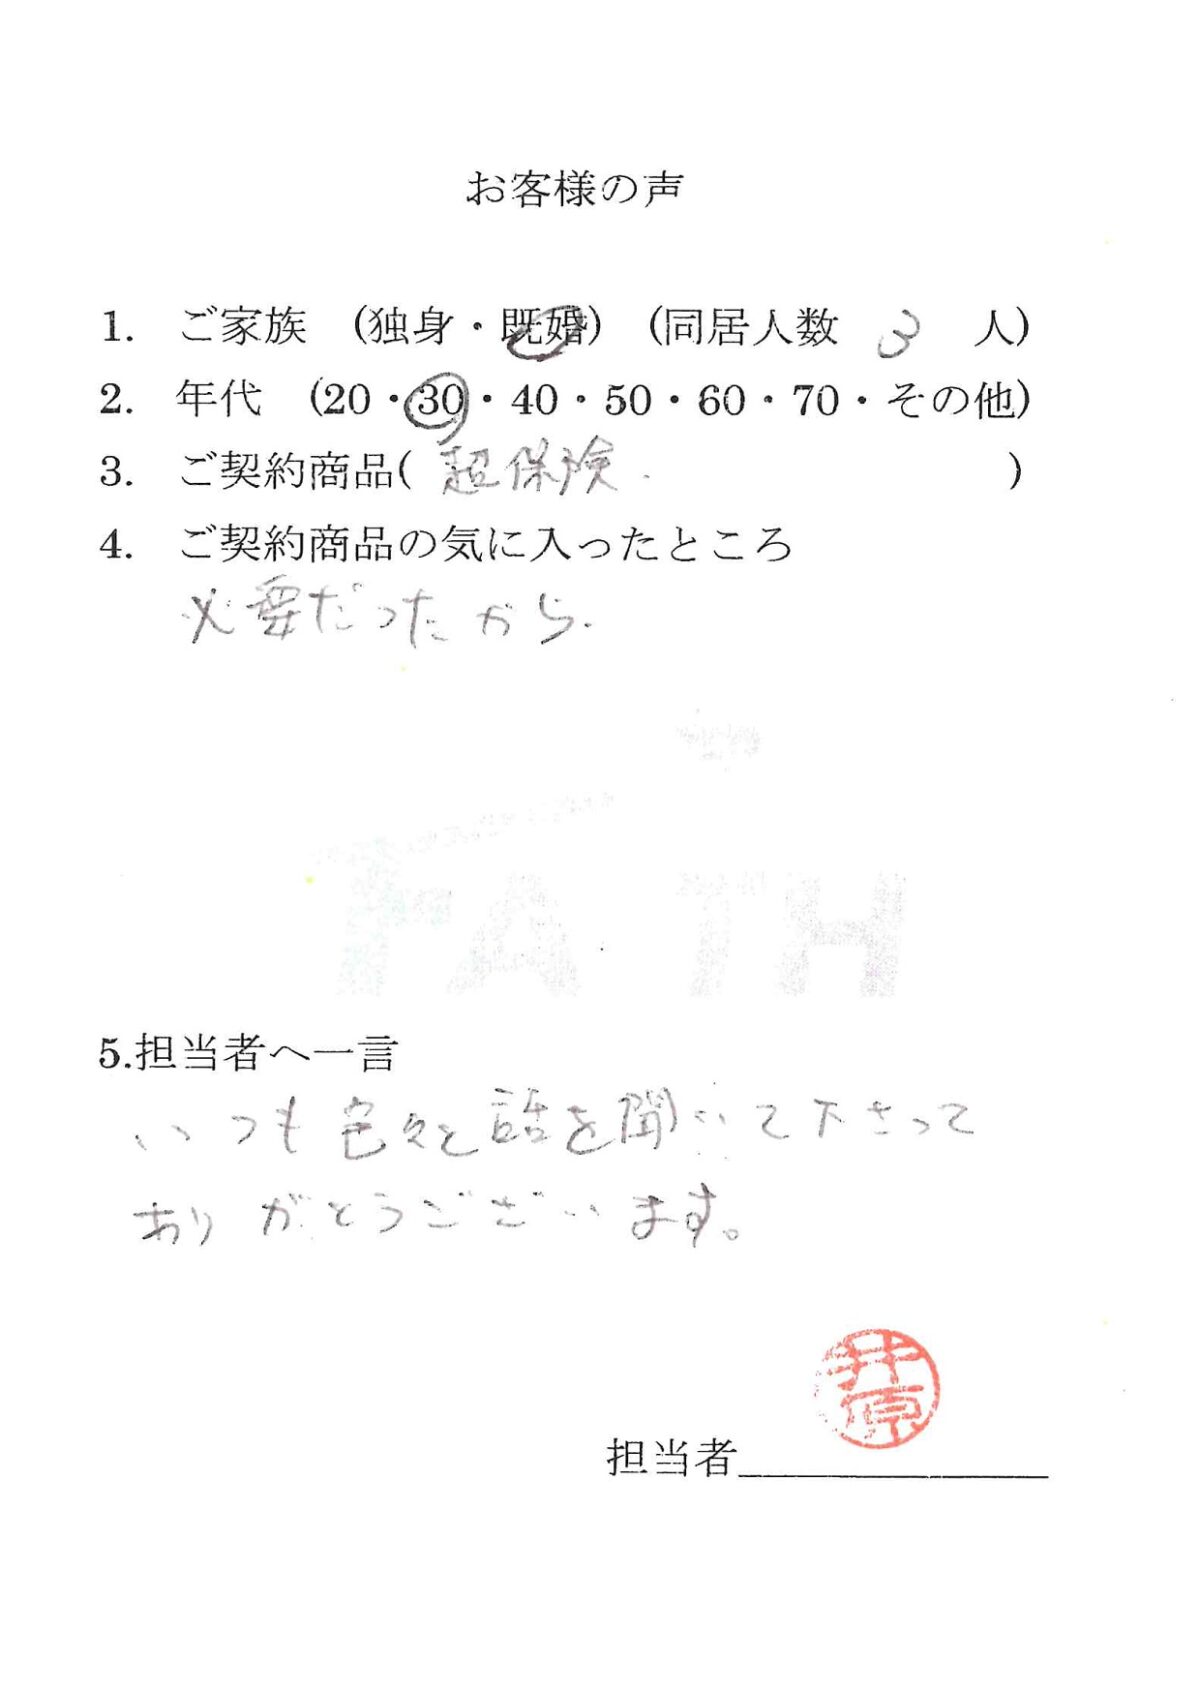 お客様の声
1. ご家族 (独身・既婚) (同居人数 3 人)
2. 年代 (20・30・40・50・60・70・その他)
3. ご契約商品( 超保険. )
4. ご契約商品の気に入ったところ
必要だったから.
FAITH
5.担当者へ一言
いつも色々と話を聞いて下さって
ありがとうございます。
井原
担当者